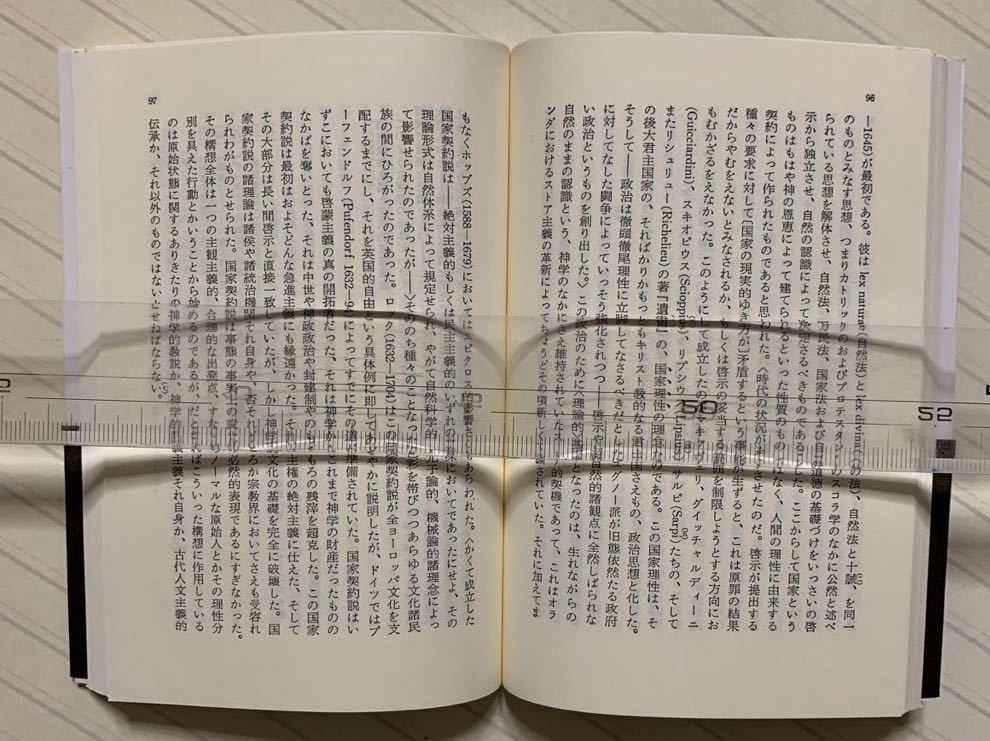 96
—1645)が最初である。彼は lex naturae(自然法)と lex divina(の法)、自然法と十誡、を同一
のものとみなす思想、つまりカトリックのおよびプロテスタントのスコラ学のなかに公然と述べ
られている思想を解体させ、自然法、万民法、国家法および自道徳の基礎づけをいっさいの啓
示から独立させ、自然の認識によって定さるべきものであるとした。ここからして国家という
ものはもはや神の恩恵によって建てられるといった性質のものではなく、人間の理性に由来する
契約によって作られたものであると思われた。〈時代の状況がそうさせたのだ。啓示が提出する
種々の要求に対して〔国家の現実的ゆき方が〕矛盾するという事が生ずると、これは原罪の結果
だからやむをえないとみなされるか、もしくは啓示の妥当する範囲を制限しようとする方向にお
もむかざるをえなかった。このようにして成立したのマキアヴェリ、グイッチャルディーニ
(Guicciardini)、スキオピウス(Scioppius)、リプシウス(Lipsius)、サルピ(Sarpi)たちの、そして
またリシュリュー(Richelieu)の著『遺書』の、国家理性の理なのである。この国家理性は、そ
の後大君主国家の、そればかりかもっともキリスト教的な君中国さえもの、政治思想と化した。
そうして——政治は徹頭徹尾理性に立脚してなさるべきだとしたグノー派が旧態依然たる政府
に対してなした闘争によっていっそう強化されつつ——啓示や自然的諸観点に全然しばられな
い政治というものを創り出した。〉この政治のために〈理論的となったのは、生れながらの
自然のままの認識という、神学のなかにさえ維持されていたスト的契機であって、これはオラ
ンダにおけるストア主義の革新によってちょうどその頃新しくされていた。それに加えてま
97
もなくホッブズ(1588—1679)においてはエピクロス的影響さもあらわれた。〈かくて成立した
国家契約説は——絶対主義的もしくは民主主義的のいずれの意においてであったにせよ、その
理論形式は自然体系によって規定せられ、やがて自然科学的子論的、機械論的諸理念によっ
て影響せられたのであったが——〉そののち種々のことなった彩を帯びつつあらゆる文化諸民
族の間にひろがったのであった。ロック(1632—1704)はこの国家契約説が全ヨーロッパ文化を支
配するまでにし、それを英国的自由という具体例に即してあざやかに説明したが、ドイツではプ
ーフェンドルフ(Pufendorf 1632—94)によってすでにその道が準備されていた。国家契約説はい
ずこにおいても啓蒙主義の真の開拓者だった、それは神学がこれまで神学の財産だったものの
なかばを奪いとった、それは中世や神政政治や封建制やのもろもろの残滓を超克した。この国家
契約説は最初はおよそどんな急進主義にも縁遠かった。それは主権の絶対主義に仕えた、そして
その大部分は長い間啓示と直接一致していたが、しかし神学文化の基礎を完全に破壊した。国
家契約説の諸理論は諸侯や諸統治機関それ自身や、否それどころか宗教界においてさえも受容れ
られわがものとせられた。国家契約説は事態の事実上の変化の必然的表現であるにすぎなかった。
その構想全体は一つの主観主義的、合理的な出発点、すなわちノーマルな原始人とかその理性分
別を具えた行動とかということから始めるのであるが、だとすればこういった構想に作用している
のは原始状態に関するありきたりの神学的教説か、神学的主義それ自身か、古代人文主義的
伝承か、それ以外のものではないとせねばならない。
50
52